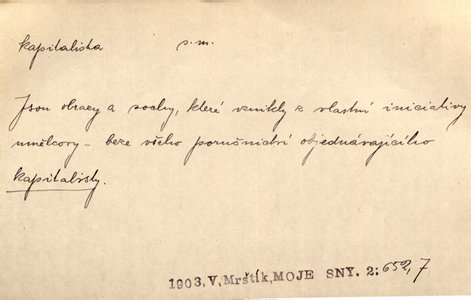 kapitalista s.m.
Jsou obrazy a sochy, které vznikly z vlastní iniciativy
umělcovy – beze všeho poručnictví objednávajícího
kapitalisty.
1903, V. Mrštík, MOJE SNY. 2: 652,7